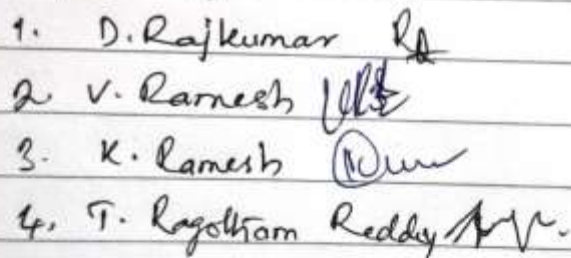 1. D. Rajkumar
2. V. Ramesh
3. K. Ramesh
4. T. Ragotham Reddy